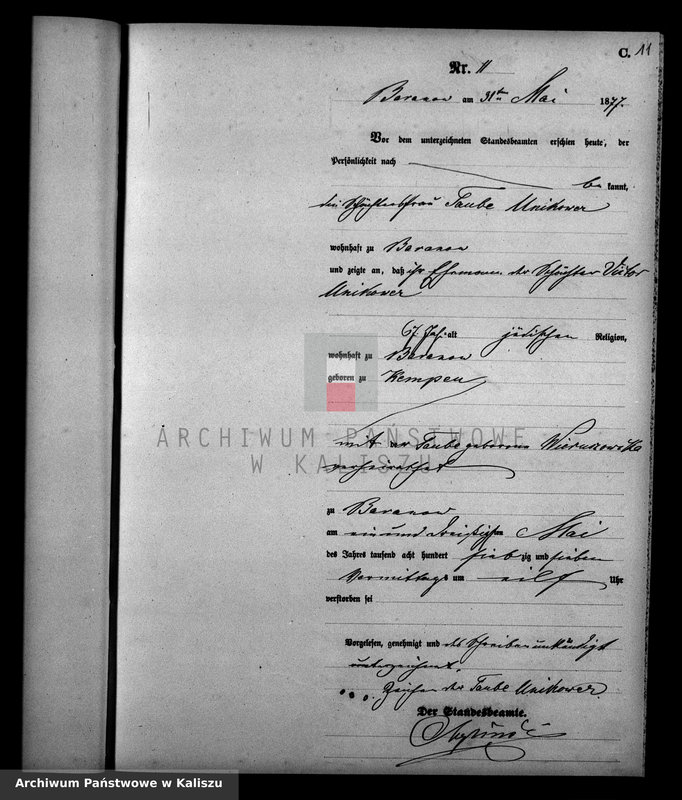 C. 11
Nr. 11
Baranow am 31ten Mai 1877.
Vor dem unterzeichneten Standesbeamten erschien heute, der
Persönlichkeit nach
be kannt,
die Schächtersfrau Taube Unikower
wohnhaft zu Baranow
und zeigte an, daß ihr Ehemann der Schächter Victor
Unikower
67 Jahr alt jüdischen Religion,
wohnhaft zu Baranow
geboren zu Kempen
mit der Taube geborene Wieruszowska
verheirathet
ARCHIWUM PAŃSTWOWE
W KALISZU
zu Baranow
am ein und dreißigsten Mai
des Jahres tausend acht hundert sieb zig und sieben
Vormittags um eilf Uhr
verstorben sei
Vorgelesen, genehmigt und als Schreibensunkündigt
unterzeichnet.
Zeichen der Taube Unikower.
Der Standesbeamte.
Archiwum Państwowe w Kaliszu